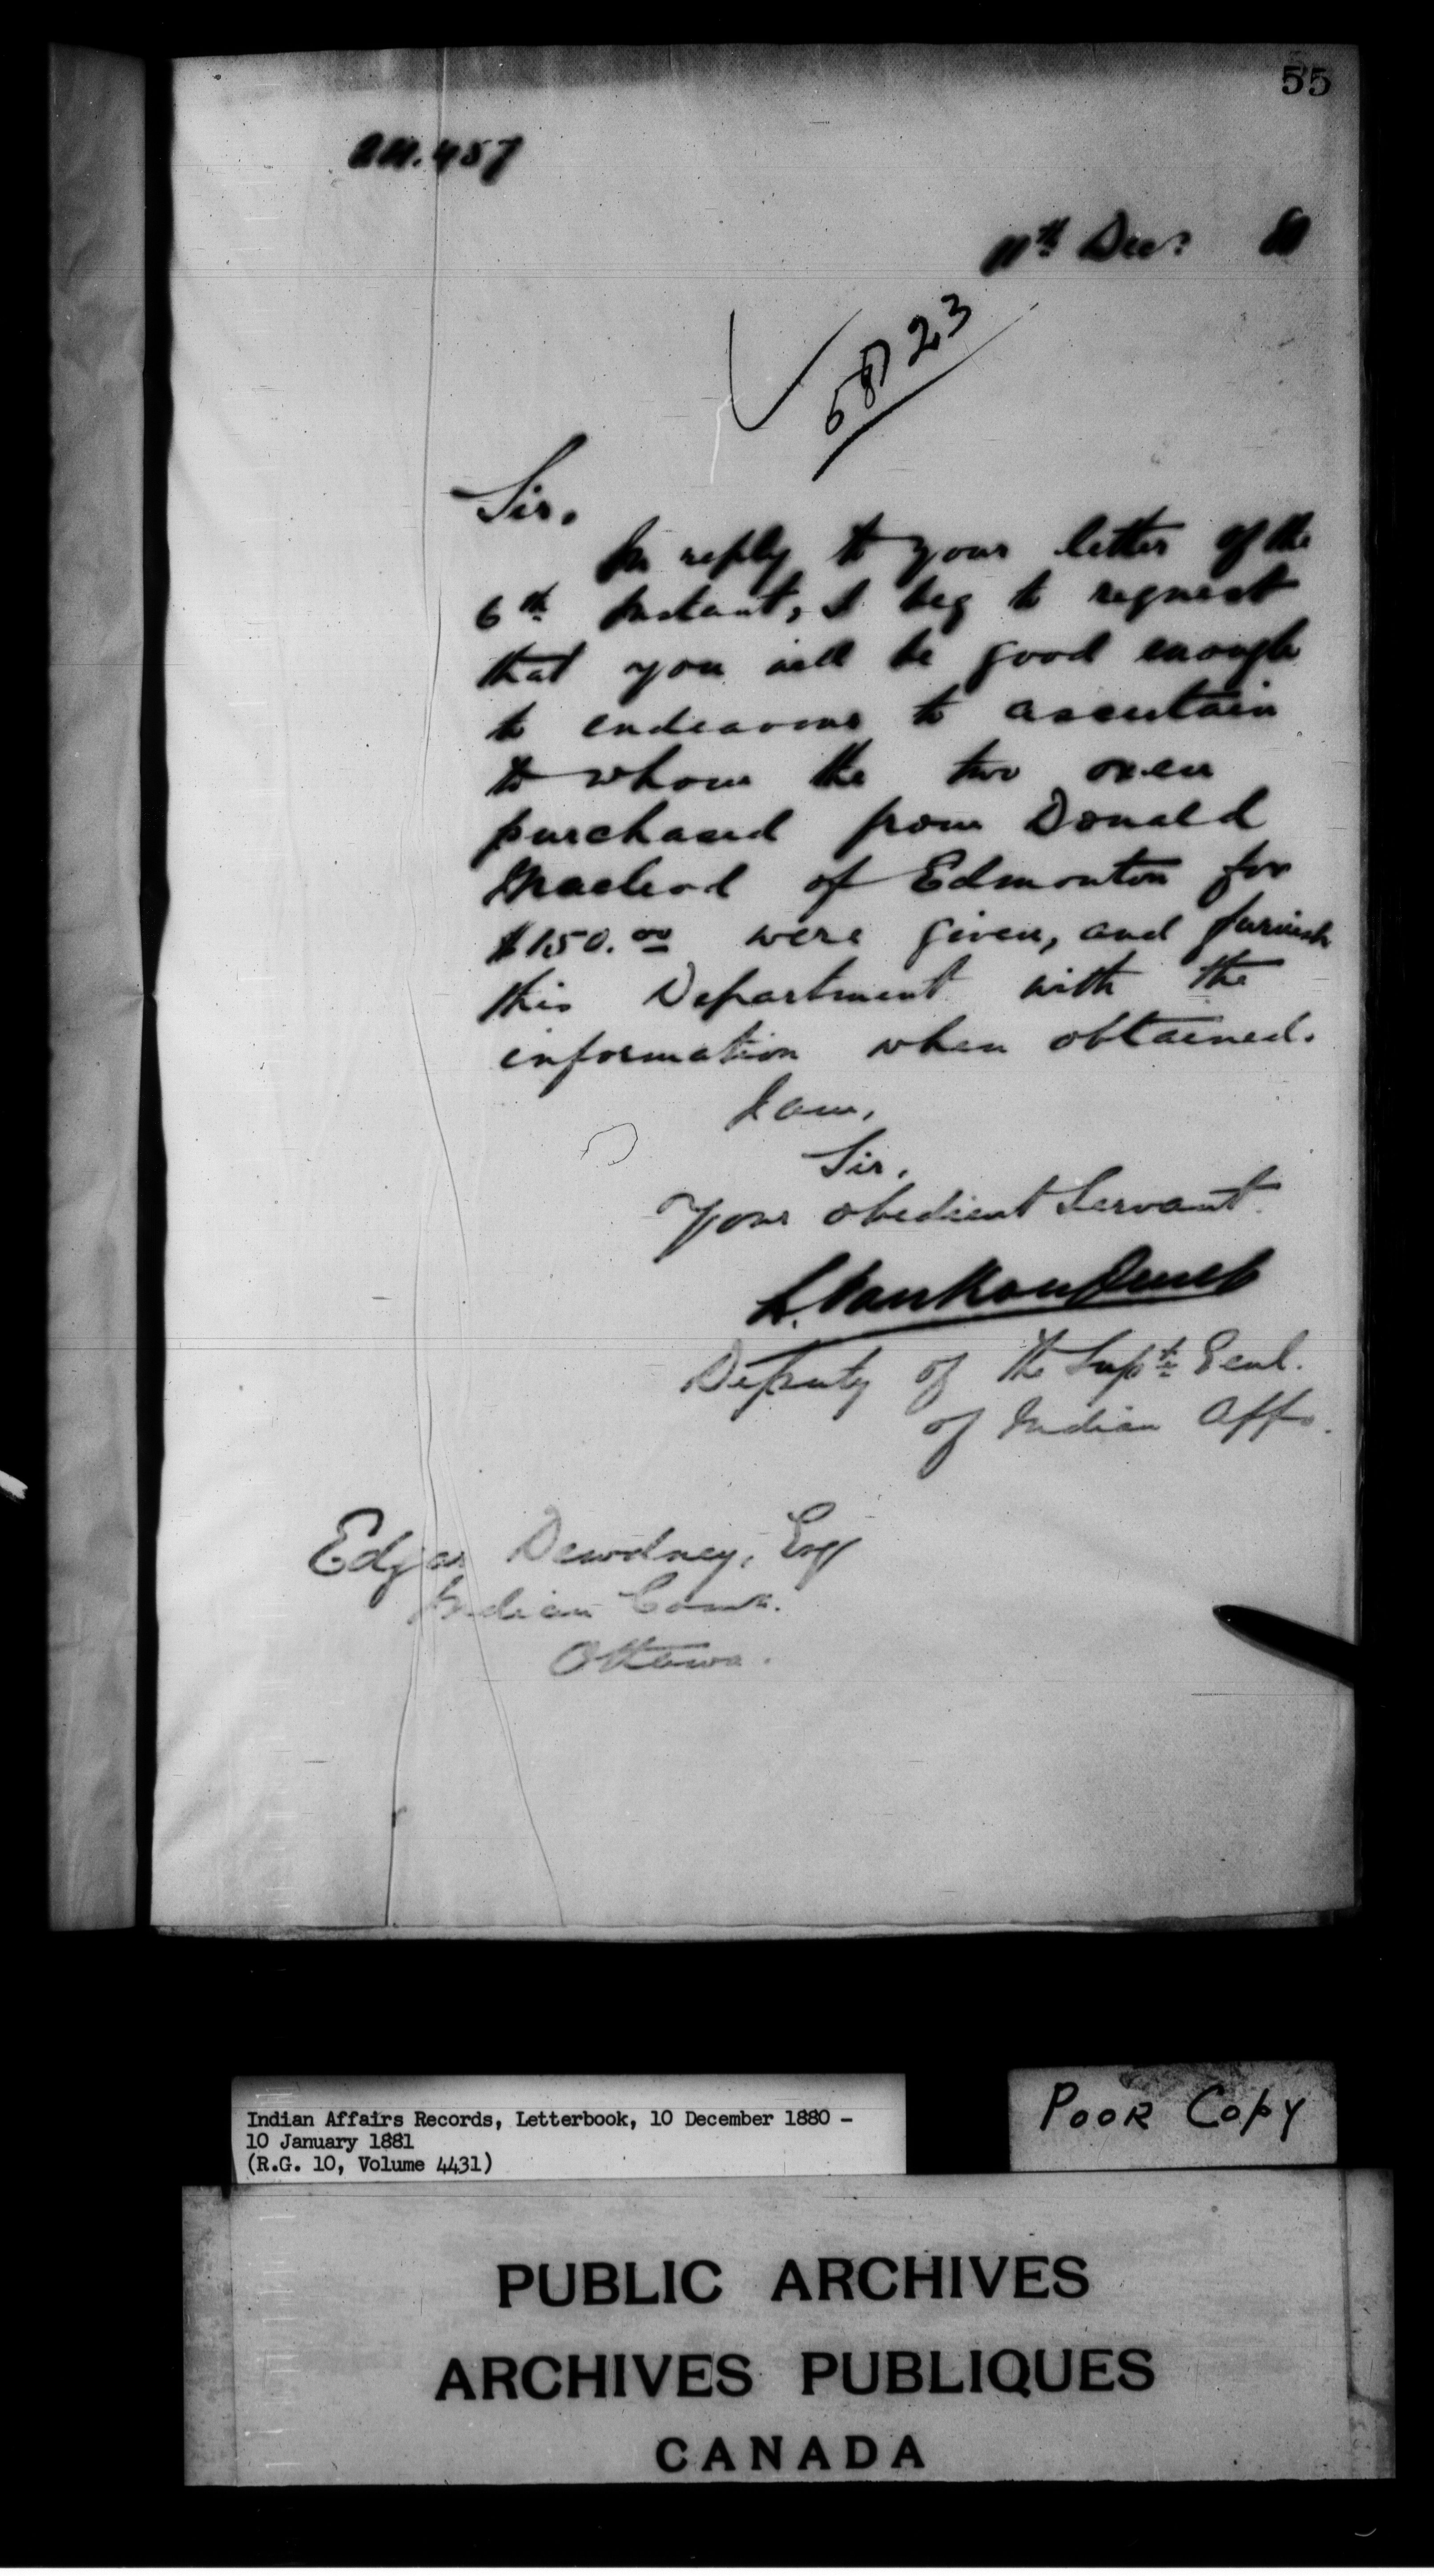 55
11th Decr 80
5823
Sir,
In reply to your letter of the
6th Instant, I beg to request
that you will be good enough
to endeavour to ascertain
to whom the two oxen
purchased from Donald
Macleod of Edmonton for
$150.00 were given, and furnish
this Department with the
information when obtained.
I am,
Sir,
Your obedient Servant.
L. VanKoughnet
Deputy of the Supt. Genl.
of Indian Affs.
Edgar Dewdney, Esq
Indian Comr.
Ottawa.
Indian Affairs Records, Letterbook, 10 December 1880 -
10 January 1881
(R.G. 10, Volume 4431)
POOR COPY
PUBLIC ARCHIVES
ARCHIVES PUBLIQUES
CANADA